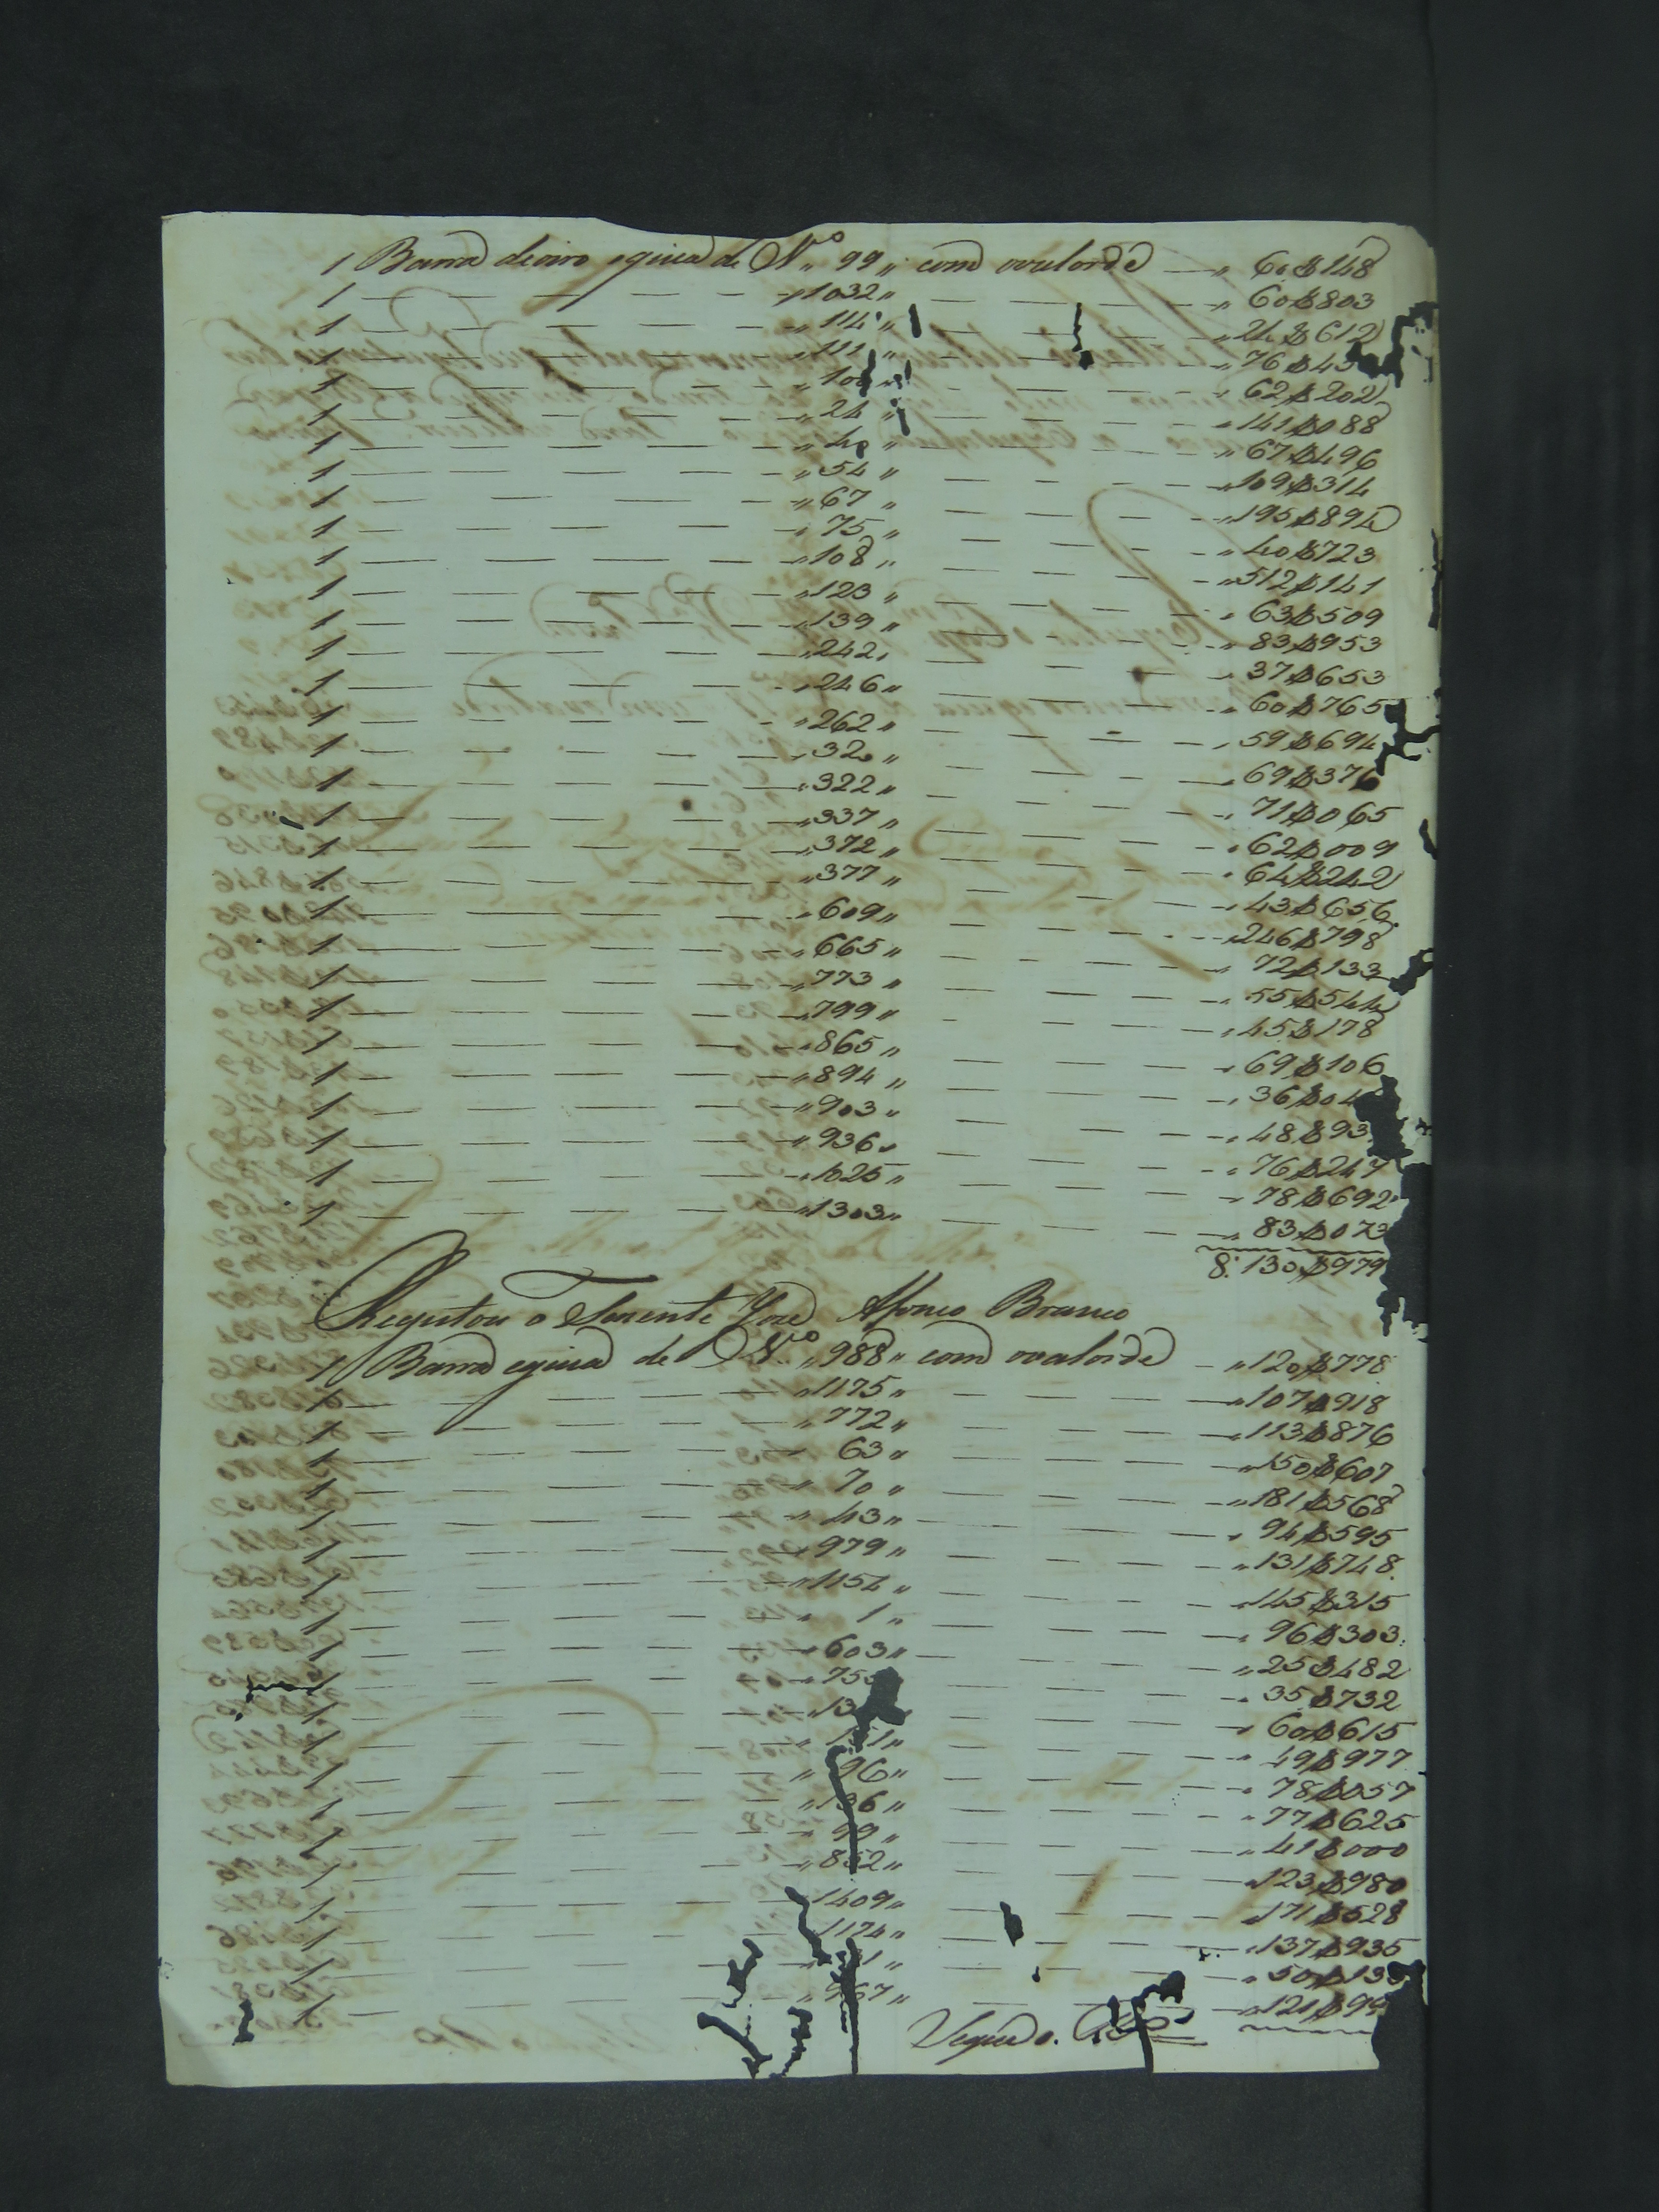 1 Barra de oiro e guia de N.º 99 com o valor de 60$148
1 1032 60$803
1 114 24$612
1 111 76$43
1 10 62$202
1 24 141$088
1 40 67$496
1 54 109$314
1 67 195$894
1 75 40$723
1 108 512$141
1 123 63$509
1 139 83$953
1 242 37$653
1 246 60$765
1 262 59$694
1 320 69$376
1 322 71$065
1 337 62$009
1 372 64$242
1 377 43$656
1 609 246$798
1 665 72$133
1 773 55$544
1 799 45$178
1 865 69$106
1 894 36$04
1 903 48$93
1 936 76$247
1 1025 78$692
1 1303 83$073
8:130$979
Registou o Tenente Joze Afonco Branco
1 Barra e guia de N.º 988 com o valor de 120$778
1 1175 107$918
1 772 113$876
1 63 150$607
1 70 181$568
1 43 94$595
1 979 131$748
1 1154 145$315
1 1 96$303
1 603 25$482
1 755 35$732
1 13 60$615
1 49$977
1 96 78$057
1 136 77$625
1 99 41$000
1 852 123$980
1 1409 171$528
1 1174 137$935
1 50$13
1 967 121$99
Segue